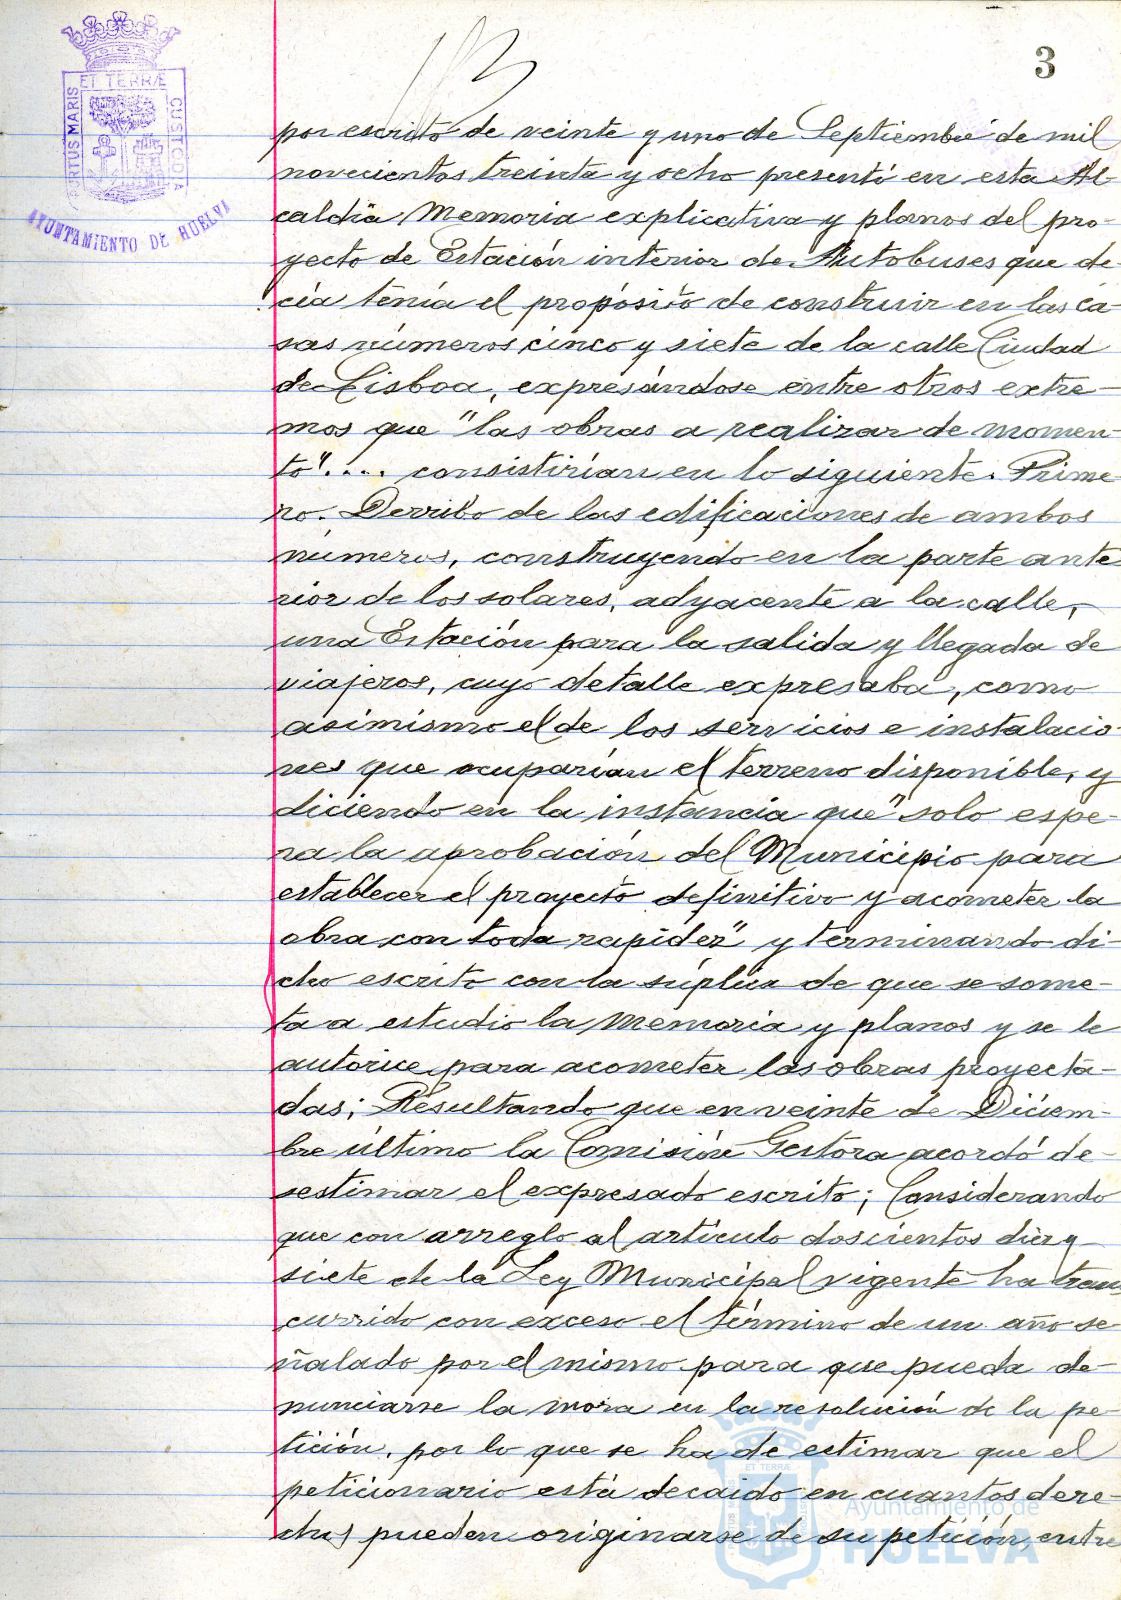 3
ET TERRÆ
PORTUS MARIS
CUSTODIA
AYUNTAMIENTO DE HUELVA
por escrito de veinte y uno de Septiembre de mil
novecientos treinta y ocho presentó en esta Al-
caldía Memoria explicativa y planos del pro-
yecto de Estación interior de Autobuses que de-
cía tenía el propósito de construir en las ca-
sas números cinco y siete de la calle Ciudad
de Lisboa, expresándose entre otros extre-
mos que "las obras a realizar de momen-
to".... consistirían en lo siguiente. Prime-
ro. Derribo de las edificaciones de ambos
números, construyendo en la parte ante
rior de los solares, adyacente a la calle,
una Estación para la salida y llegada de
viajeros, cuyo detalle expresaba, como
asimismo el de los servicios e instalacio-
nes que ocuparían el terreno disponible, y
diciendo en la instancia que "solo espe-
ra la aprobación del Municipio para
establecer el proyecto definitivo y acometer la
obra con toda rapidez" y terminando di-
cho escrito con la súplica de que se some-
ta a estudio la Memoria y planos y se le
autorice para acometer las obras proyecta-
das; Resultando que en veinte de Diciem-
bre último la Comisión Gestora acordó de-
sestimar el expresado escrito; Considerando
que con arreglo al artículo doscientos diez y
siete de la Ley Municipal vigente ha trans
currido con exceso el término de un año se-
ñalado por el mismo para que pueda de-
nunciarse la mora en la resolución de la pe-
tición, por lo que se ha de estimar que el
peticionario está decaído en cuantos dere-
chos pueden originarse de su petición, entre
ET TERRÆ
Ayuntamiento de
HUELVA